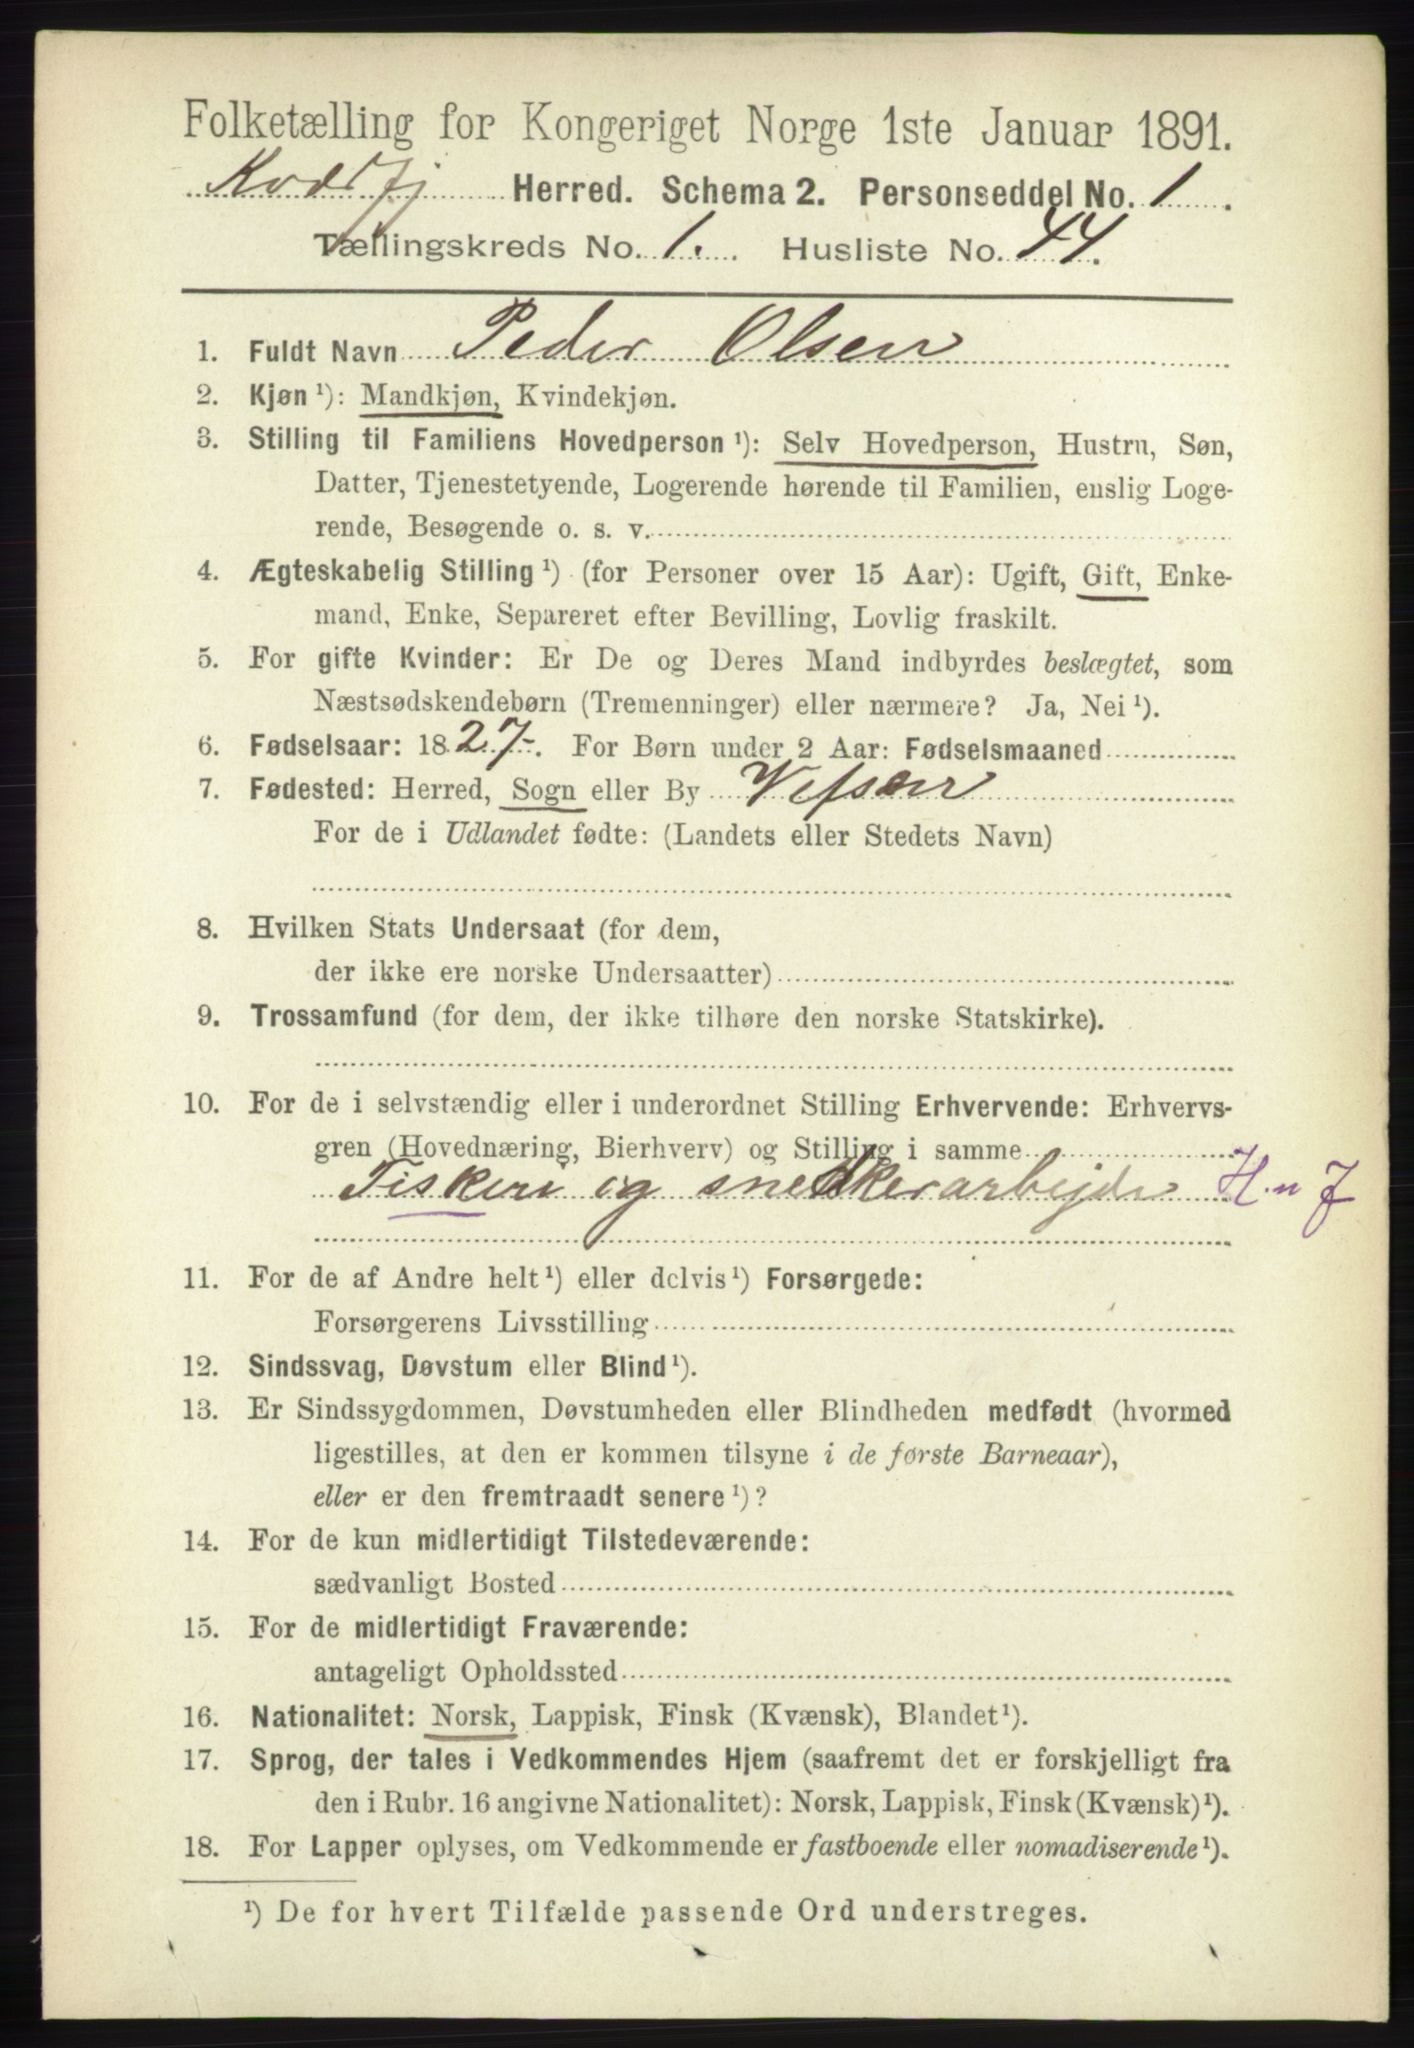 Folketælling for Kongeriget Norge 1ste Januar 1891.
Kvæfj Herred. Schema 2. Personseddel No. 1.
Tællingskreds No. 1. Husliste No. 44.
1. Fuldt Navn Peder Olsen
2. Kjøn ¹): Mandkjøn, Kvindekjøn.
3. Stilling til Familiens Hovedperson ¹): Selv Hovedperson, Hustru, Søn,
Datter, Tjenestetyende, Logerende hørende til Familien, enslig Loge-
rende, Besøgende o. s. v.
4. Ægteskabelig Stilling ¹) (for Personer over 15 Aar): Ugift, Gift, Enke-
mand, Enke, Separeret efter Bevilling, Lovlig fraskilt.
5. For gifte Kvinder: Er De og Deres Mand indbyrdes beslægtet, som
Næstsødskendebørn (Tremenninger) eller nærmere? Ja, Nei ¹).
6. Fødselsaar: 1827. For Børn under 2 Aar: Fødselsmaaned
7. Fødested: Herred, Sogn eller By Vefsen
For de i Udlandet fødte: (Landets eller Stedets Navn)
8. Hvilken Stats Undersaat (for dem,
der ikke ere norske Undersaatter)
9. Trossamfund (for dem, der ikke tilhøre den norske Statskirke).
10. For de i selvstændig eller i underordnet Stilling Erhvervende: Erhvervs-
gren (Hovednæring, Bierhverv) og Stilling i samme
Fiskeri og snedkerarbejde H. n F
11. For de af Andre helt ¹) eller delvis ¹) Forsørgede:
Forsørgerens Livsstilling
12. Sindssvag, Døvstum eller Blind ¹).
13. Er Sindssygdommen, Døvstumheden eller Blindheden medfødt (hvormed
ligestilles, at den er kommen tilsyne i de første Barneaar),
eller er den fremtraadt senere ¹)?
14. For de kun midlertidigt Tilstedeværende:
sædvanligt Bosted
15. For de midlertidigt Fraværende:
antageligt Opholdssted
16. Nationalitet: Norsk, Lappisk, Finsk (Kvænsk), Blandet ¹).
17. Sprog, der tales i Vedkommendes Hjem (saafremt det er forskjelligt fra
den i Rubr. 16 angivne Nationalitet): Norsk, Lappisk, Finsk (Kvænsk) ¹).
18. For Lapper oplyses, om Vedkommende er fastboende eller nomadiserende ¹).
¹) De for hvert Tilfælde passende Ord understreges.